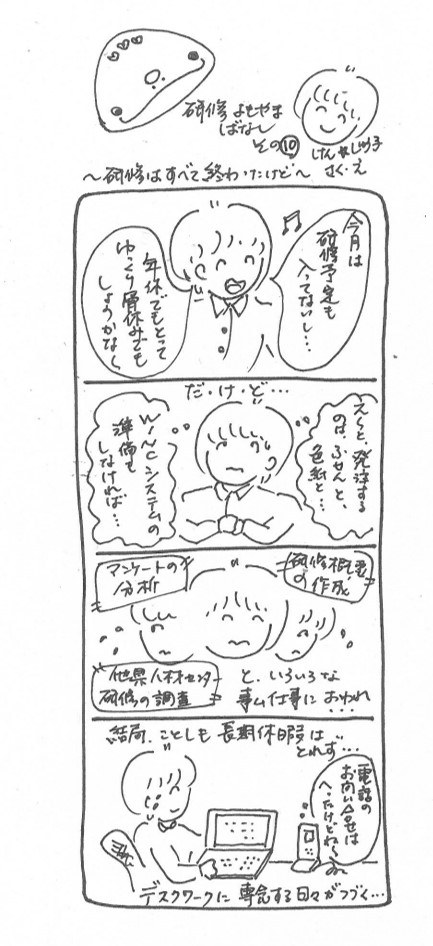 研修よもやま
ばなし
その⑩
けん★しゅう子
さく・え
〜研修はすべて終わったけど〜
今月は
研修予定も
入ってないし…
年休でもとって
ゆっくり骨休みでも
しようかな〜
だ・け・ど…
え〜と、発注する
のは、ふせんと、
色紙と…
WINCシステムの
準備も
しなければ…
研修概要
の作成
アンケートの
分析
他県人材センター
研修の調査
と、いろいろな
事ム仕事におわれ
…
結局、ことしも長期休暇は
とれず…
電話の
お問い合せは
へったけどね〜
デスクワークに専念する日々がつづく…